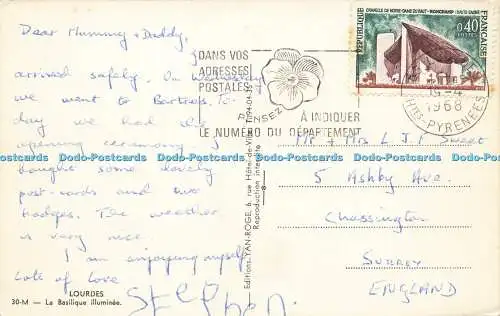 Dear Mummy + Daddy,
arrived safely. On Wednesday
we went to Bartres. To-
day we had the
opening ceremony I
bought some lovely
post-cards and two
badges. The weather
is very nice
I am enjoying myself
Lots of Love
Stephen.
LOURDES
30-M — La Basilique illuminée.
Editions YAN-ROGE, 6, rue Hôtel-de-Ville
Reproduction interdite
DANS VOS
ADRESSES
POSTALES
PENSEZ
À INDIQUER
LE NUMÉRO DU DÉPARTEMENT
CHAPELLE DE NOTRE-DAME DU HAUT - RONCHAMP (HAUTE-SAÔNE)
RÉPUBLIQUE
FRANÇAISE
0,40
POSTES
19-4
1968
HTES-PYRENEES
Mr + Mrs L J F Sweet
5 Ashby Ave.
Chessington
SURREY
ENGLAND
Dodo-Postcards Dodo-Postcards Dodo-Postcards Dodo-Postcards Dodo-Postcards